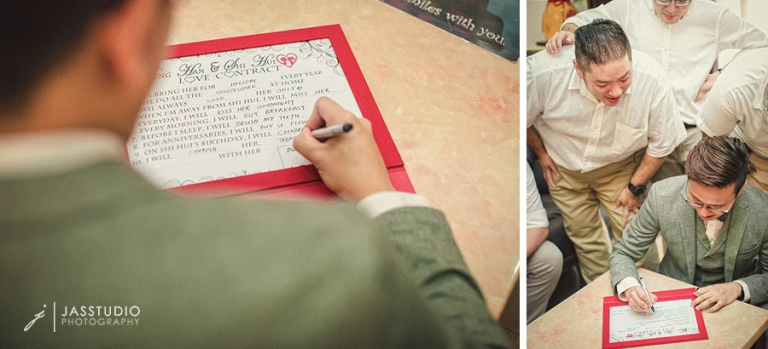 smiles with you.
HAN & SHI HUI
LOVE CONTRACT
BRING HER FOR HOLIDAY EVERY YEAR
DO ALL THE HOUSEWORK AT HOME
ALWAYS LOVE HER ONLY
WHEN I'M AWAY FROM SHI HUI, I WILL MISS HER
EVERYDAY, I WILL KISS HER GOODNIGHT
EVERY MORNING, I WILL BRUSH MY TEETH
BEFORE I SLEEP, I WILL
8. FOR ANNIVERSARIES, I WILL BUY
9. ON SHI HUI'S BIRTHDAY, I WILL
10. I WILL CHERISH WITH HER
JASSTUDIO
PHOTOGRAPHY